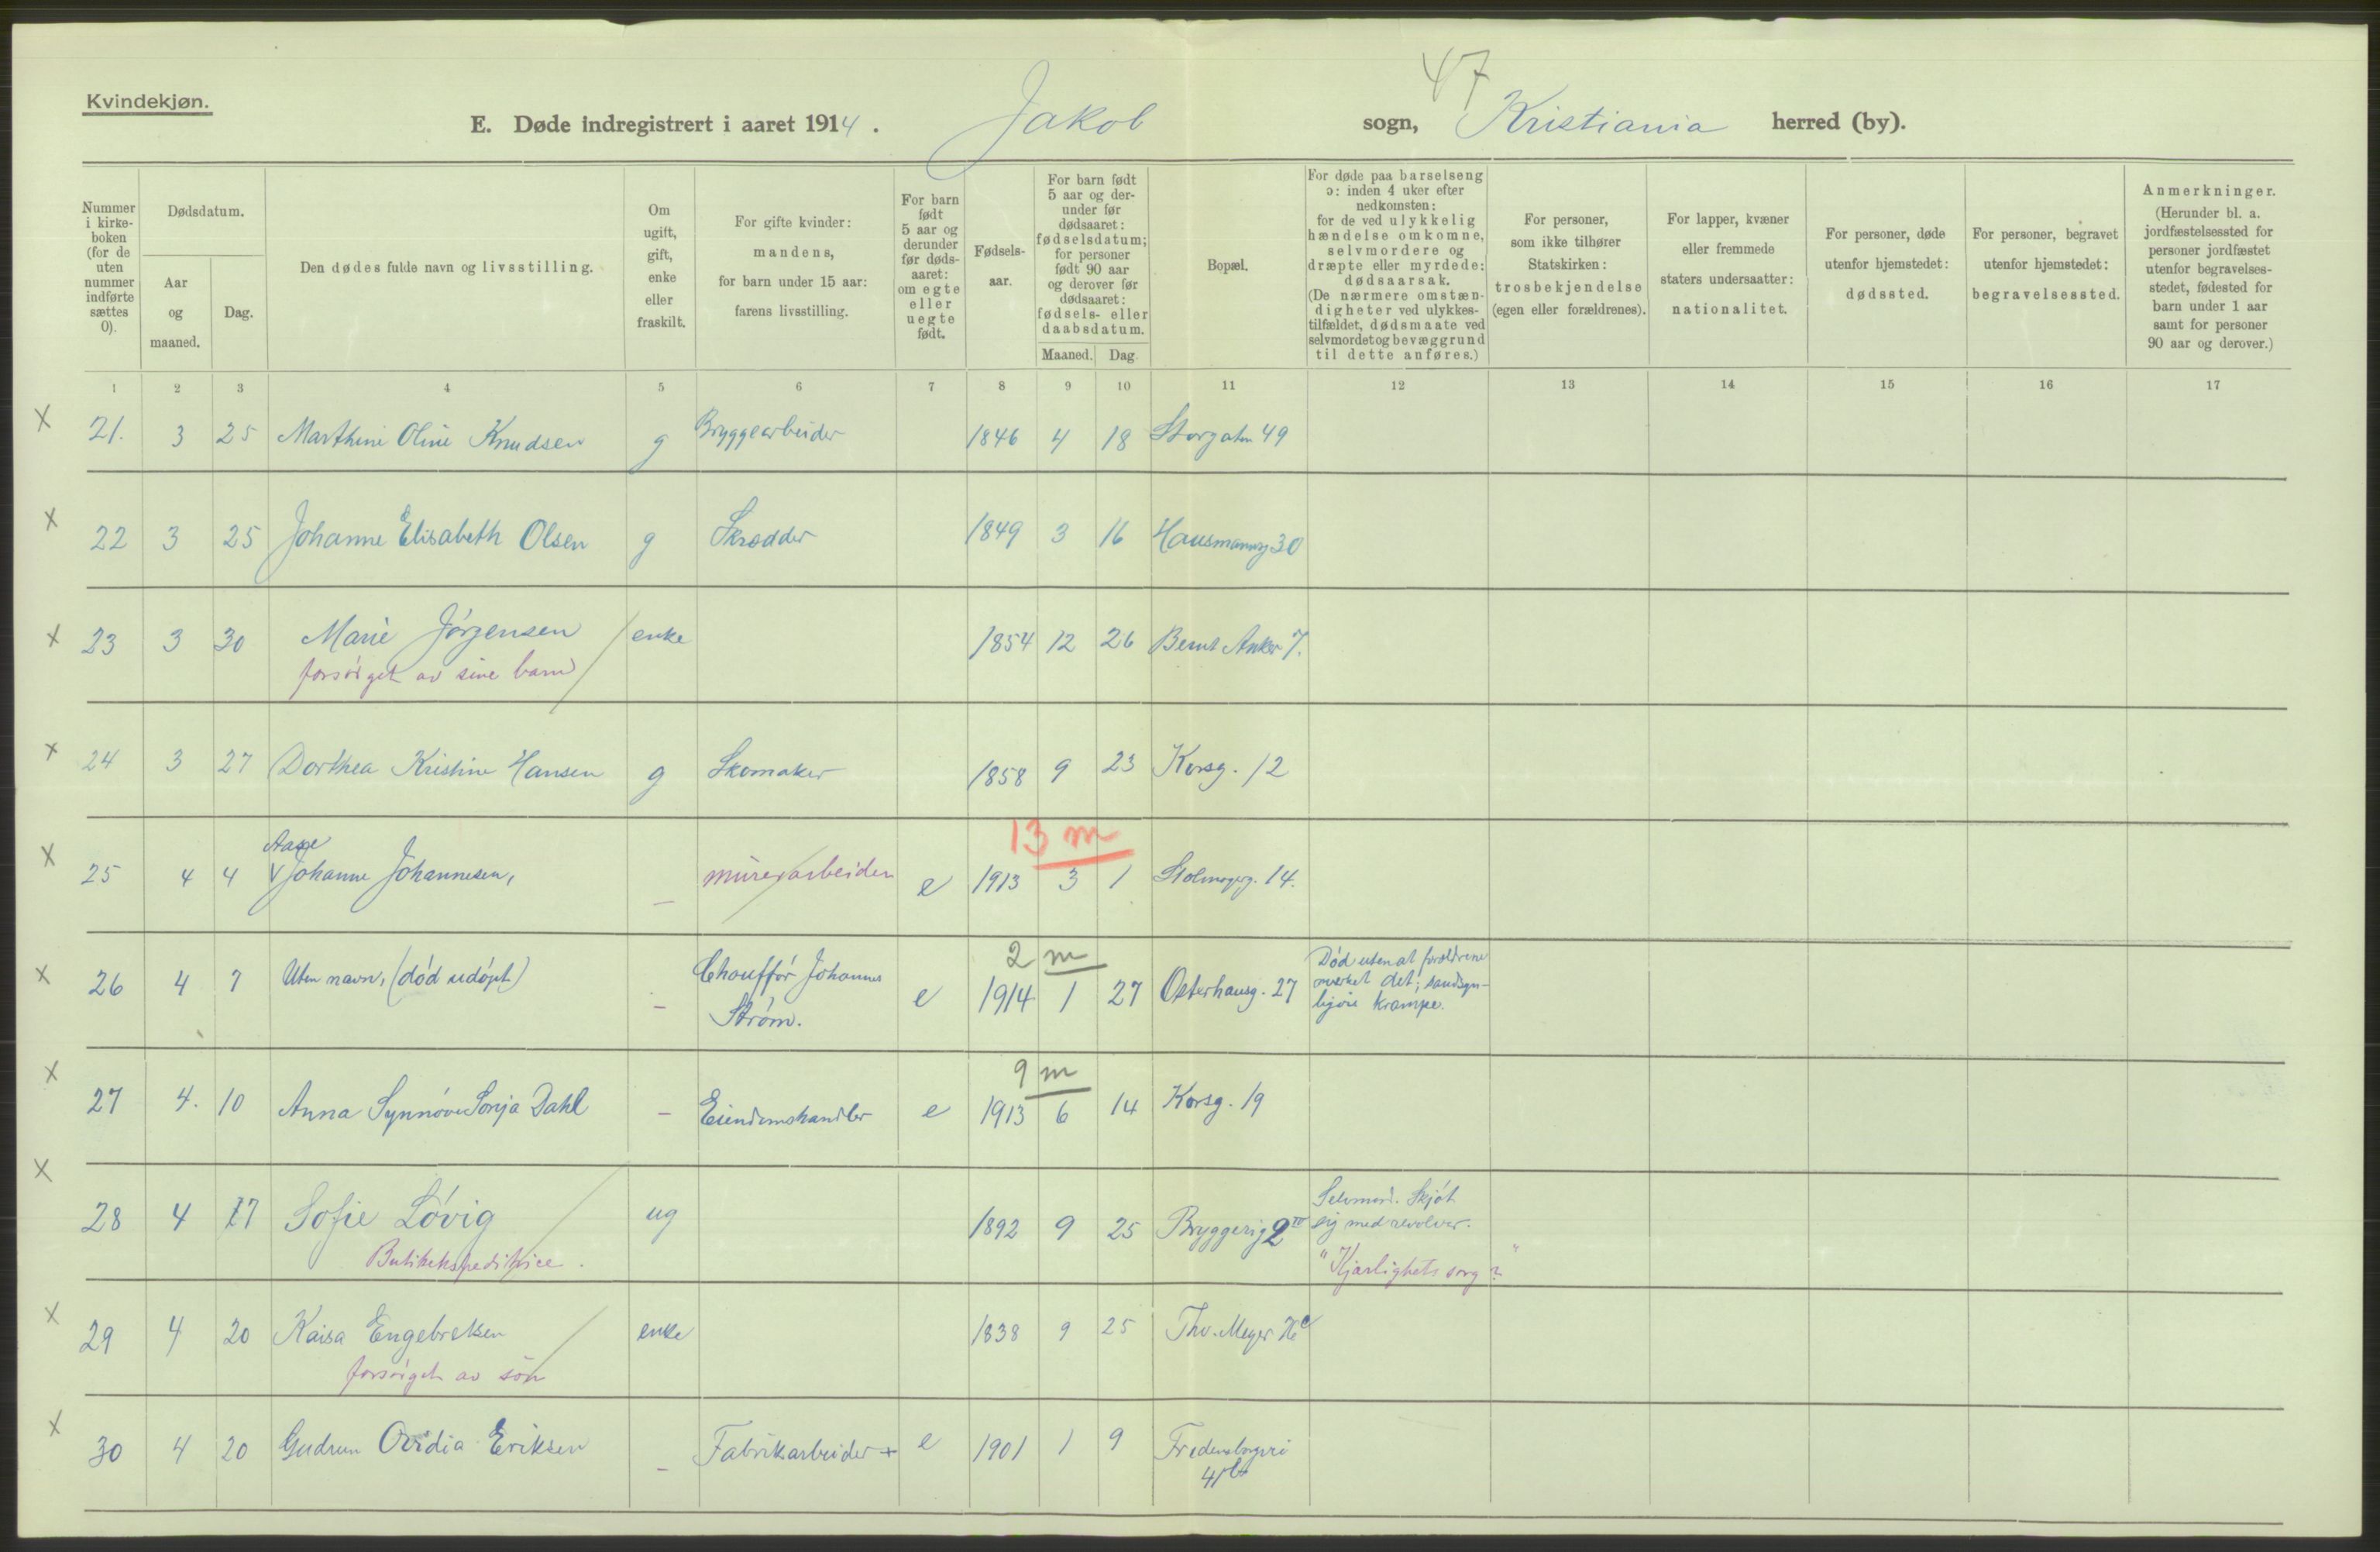 47
Kvindekjøn.
E. Døde indregistrert i aaret 1914. Jakob sogn, Kristiania herred (by).
Nummer i kirke-boken (for de uten nummer indførte sættes 0).
Dødsdatum.
Aar og maaned.
Dag.
Den dødes fulde navn og livsstilling.
Om ugift, gift, enke eller fraskilt.
For gifte kvinder: mandens, for barn under 15 aar: farens livsstilling.
For barn født 5 aar og derunder før døds-aaret: om egte eller uegte født.
Fødsels-aar.
For barn født 5 aar og der-under før dødsaaret: fødselsdatum; for personer født 90 aar og derover før dødsaaret: fødsels- eller daabsdatum.
Maaned. Dag.
Bopæl.
For døde paa barselseng ɔ: inden 4 uker efter nedkomsten: for de ved ulykkelig hændelse omkomne, selvmordere og dræpte eller myrdede: dødsaarsak. (De nærmere omstæn-digheter ved ulykkes-tilfældet, dødsmaate ved selvmordet og bevæggrund til dette anføres.)
For personer, som ikke tilhører Statskirken: trosbekjendelse (egen eller forældrenes).
For lapper, kvæner eller fremmede staters undersaatter: nationalitet.
For personer, døde utenfor hjemstedet: dødssted.
For personer, begravet utenfor hjemstedet: begravelsessted.
Anmerkninger. (Herunder bl. a. jordfæstelsessted for personer jordfæstet utenfor begravelses-stedet, fødested for barn under 1 aar samt for personer 90 aar og derover.)
1 2 3 4 5 6 7 8 9 10 11 12 13 14 15 16 17
x 21. 3 25 Marthine Oline Knudsen g Bryggearbeider 1846 4 18 Storgaten 49
x 22 3 25 Johanne Elisabeth Olsen g Skrædder 1849 3 16 Hausmannsg 30
x 23 3 30 Marie Jörgensen enke 1854 12 26 Bernt Anker 7.
forsörget av sine barn
x 24 3 27 Dorthea Kristine Hansen g Skomaker 1858 9 23 Korsg. 12
13 m
Aase
x 25 4 4 Johanne Johannesen, — murerarbeider e 1913 3 1 Holmsgg. 14.
2 m
x 26 4 7 Uten navn, (död udöpt) — Chaufför Johannes Ström. e 1914 1 27 Osterhausg. 27 Död uten at forældrene
merket det; sandsyn-
ligvis krampe.
9 m
x 27 4. 10 Anna Synnöve Sonja Dahl — Eiendomshandler e 1913 6 14 Korsg. 19
x 28 4 17 Sofie Lövig ug 1892 9 25 Bryggerig 2 IV Selvmord. Skjöt
sig med revolver.
Butikekspeditrice. "Kjærlighetssorg?"
x 29 4 20 Kaisa Engebretsen enke 1838 9 25 Thv. Meyer
forsörget av sön
x 30 4 20 Gudrun Ovidia Eriksen — Fabrikarbeider + e 1901 1 9 Fredensborgvei
41b